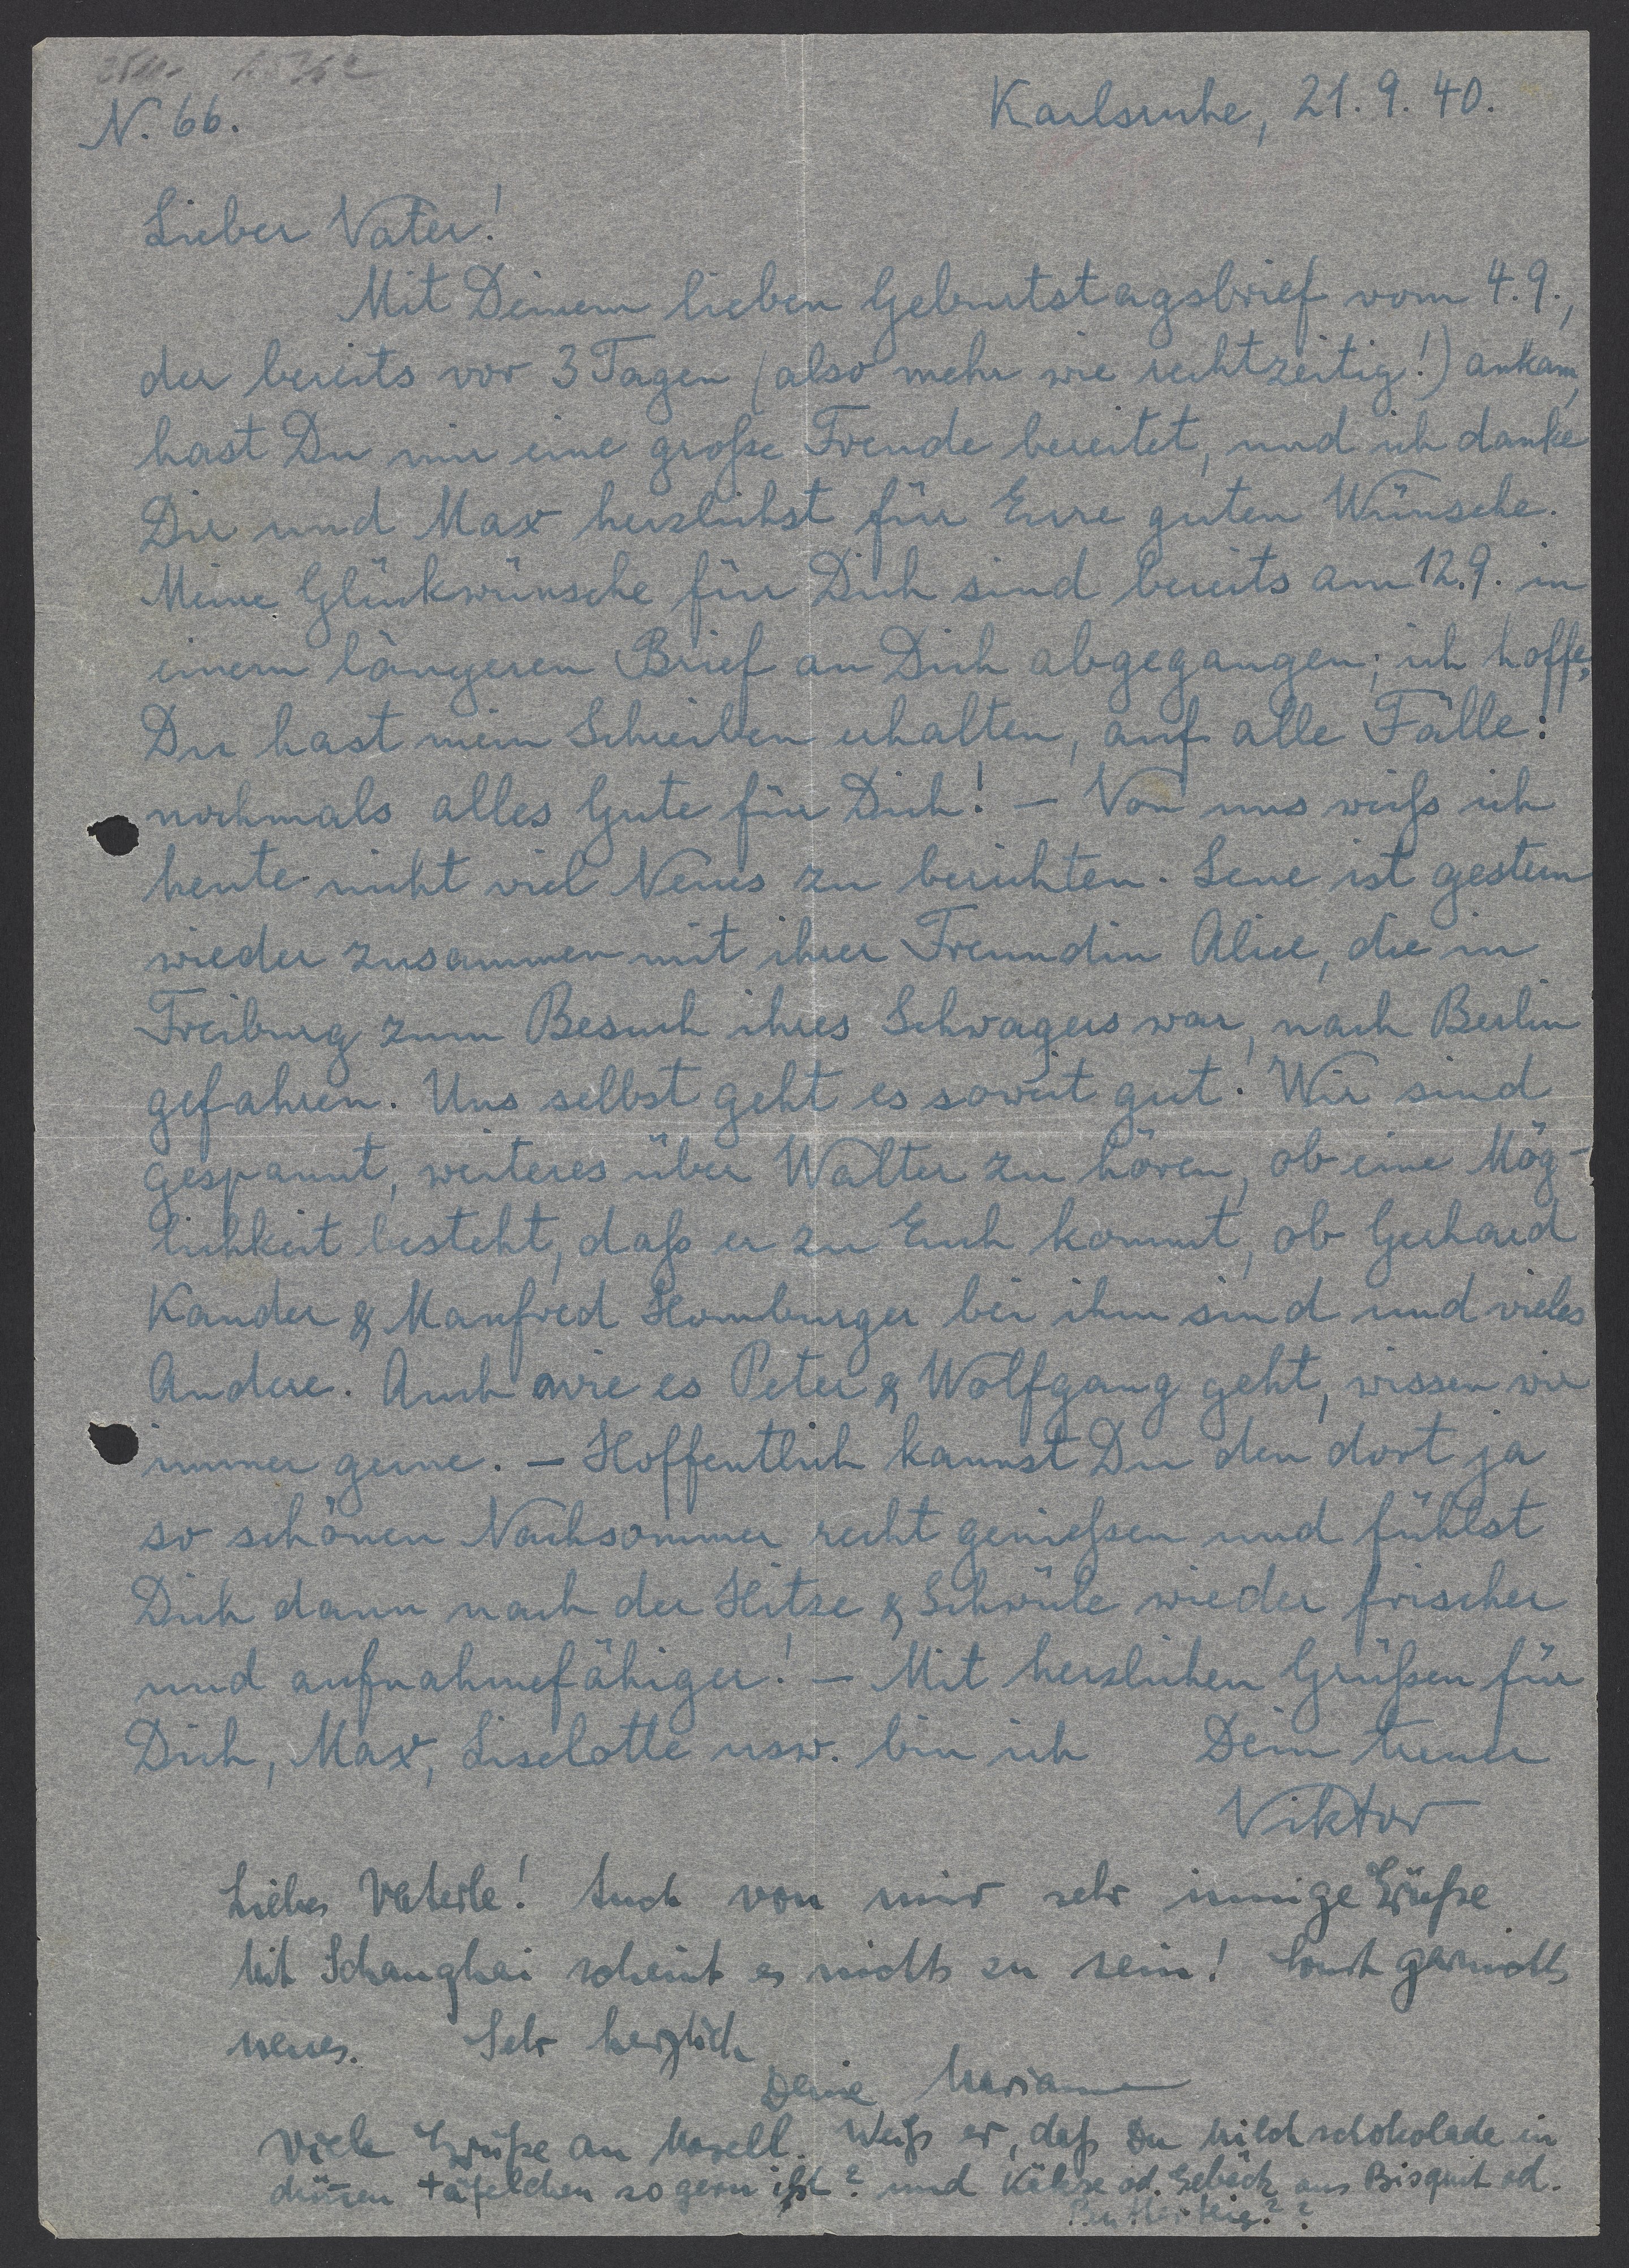 N. 66.
Karlsruhe, 21. 9. 40.
Lieber Vater!
Mit Deinem lieben Geburtstagsbrief vom 4. 9.,
der bereits vor 3 Tagen (also mehr wie rechtzeitig!) ankam,
hast Du mir eine große Freude bereitet, und ich danke
Dir und Max herzlichst für Eure guten Wünsche.
Meine Glückwünsche für Dich sind bereits am 12. 9. in
einem längeren Brief an Dich abgegangen; ich hoffe,
Du hast mein Schreiben erhalten, auf alle Fälle:
nochmals alles Gute für Dich! – Von uns weiß ich
heute nicht viel Neues zu berichten. Lene ist gestern
wieder zusammen mit ihrer Freundin Alice, die in
Freiburg zum Besuch ihres Schwagers war, nach Berlin
gefahren. Uns selbst geht es soweit gut. Wir sind
gespannt, weiteres über Walter zu hören, ob eine Mög-
lichkeit besteht, daß er zu Euch kommt, ob Gerhard
Kander & Manfred Homburger bei ihm sind und vieles
Andere. Auch wie es Peter & Wolfgang geht, wissen wir
immer gerne. – Hoffentlich kannst Du den dort ja
so schönen Nachsommer recht genießen und fühlst
Dich dann nach der Hitze & Schwüle wieder frischer
und aufnahmefähiger! – Mit herzlichen Grüßen für
Dich, Max, Liselotte usw. bin ich Dein treuer
Viktor
Liebes Vaterle! Auch von mir sehr innige Grüße
Mit Schanghai scheint es nichts zu sein! Sonst garnichts
neues. Sehr herzlich
Deine Marianne
Viele Grüße an Maxell. Weiß er, daß Du Milchschokolade in
dünnen täfelchen so gern ißt? und Kekse od. Gebäck aus Bisquit od.
Butterteig??